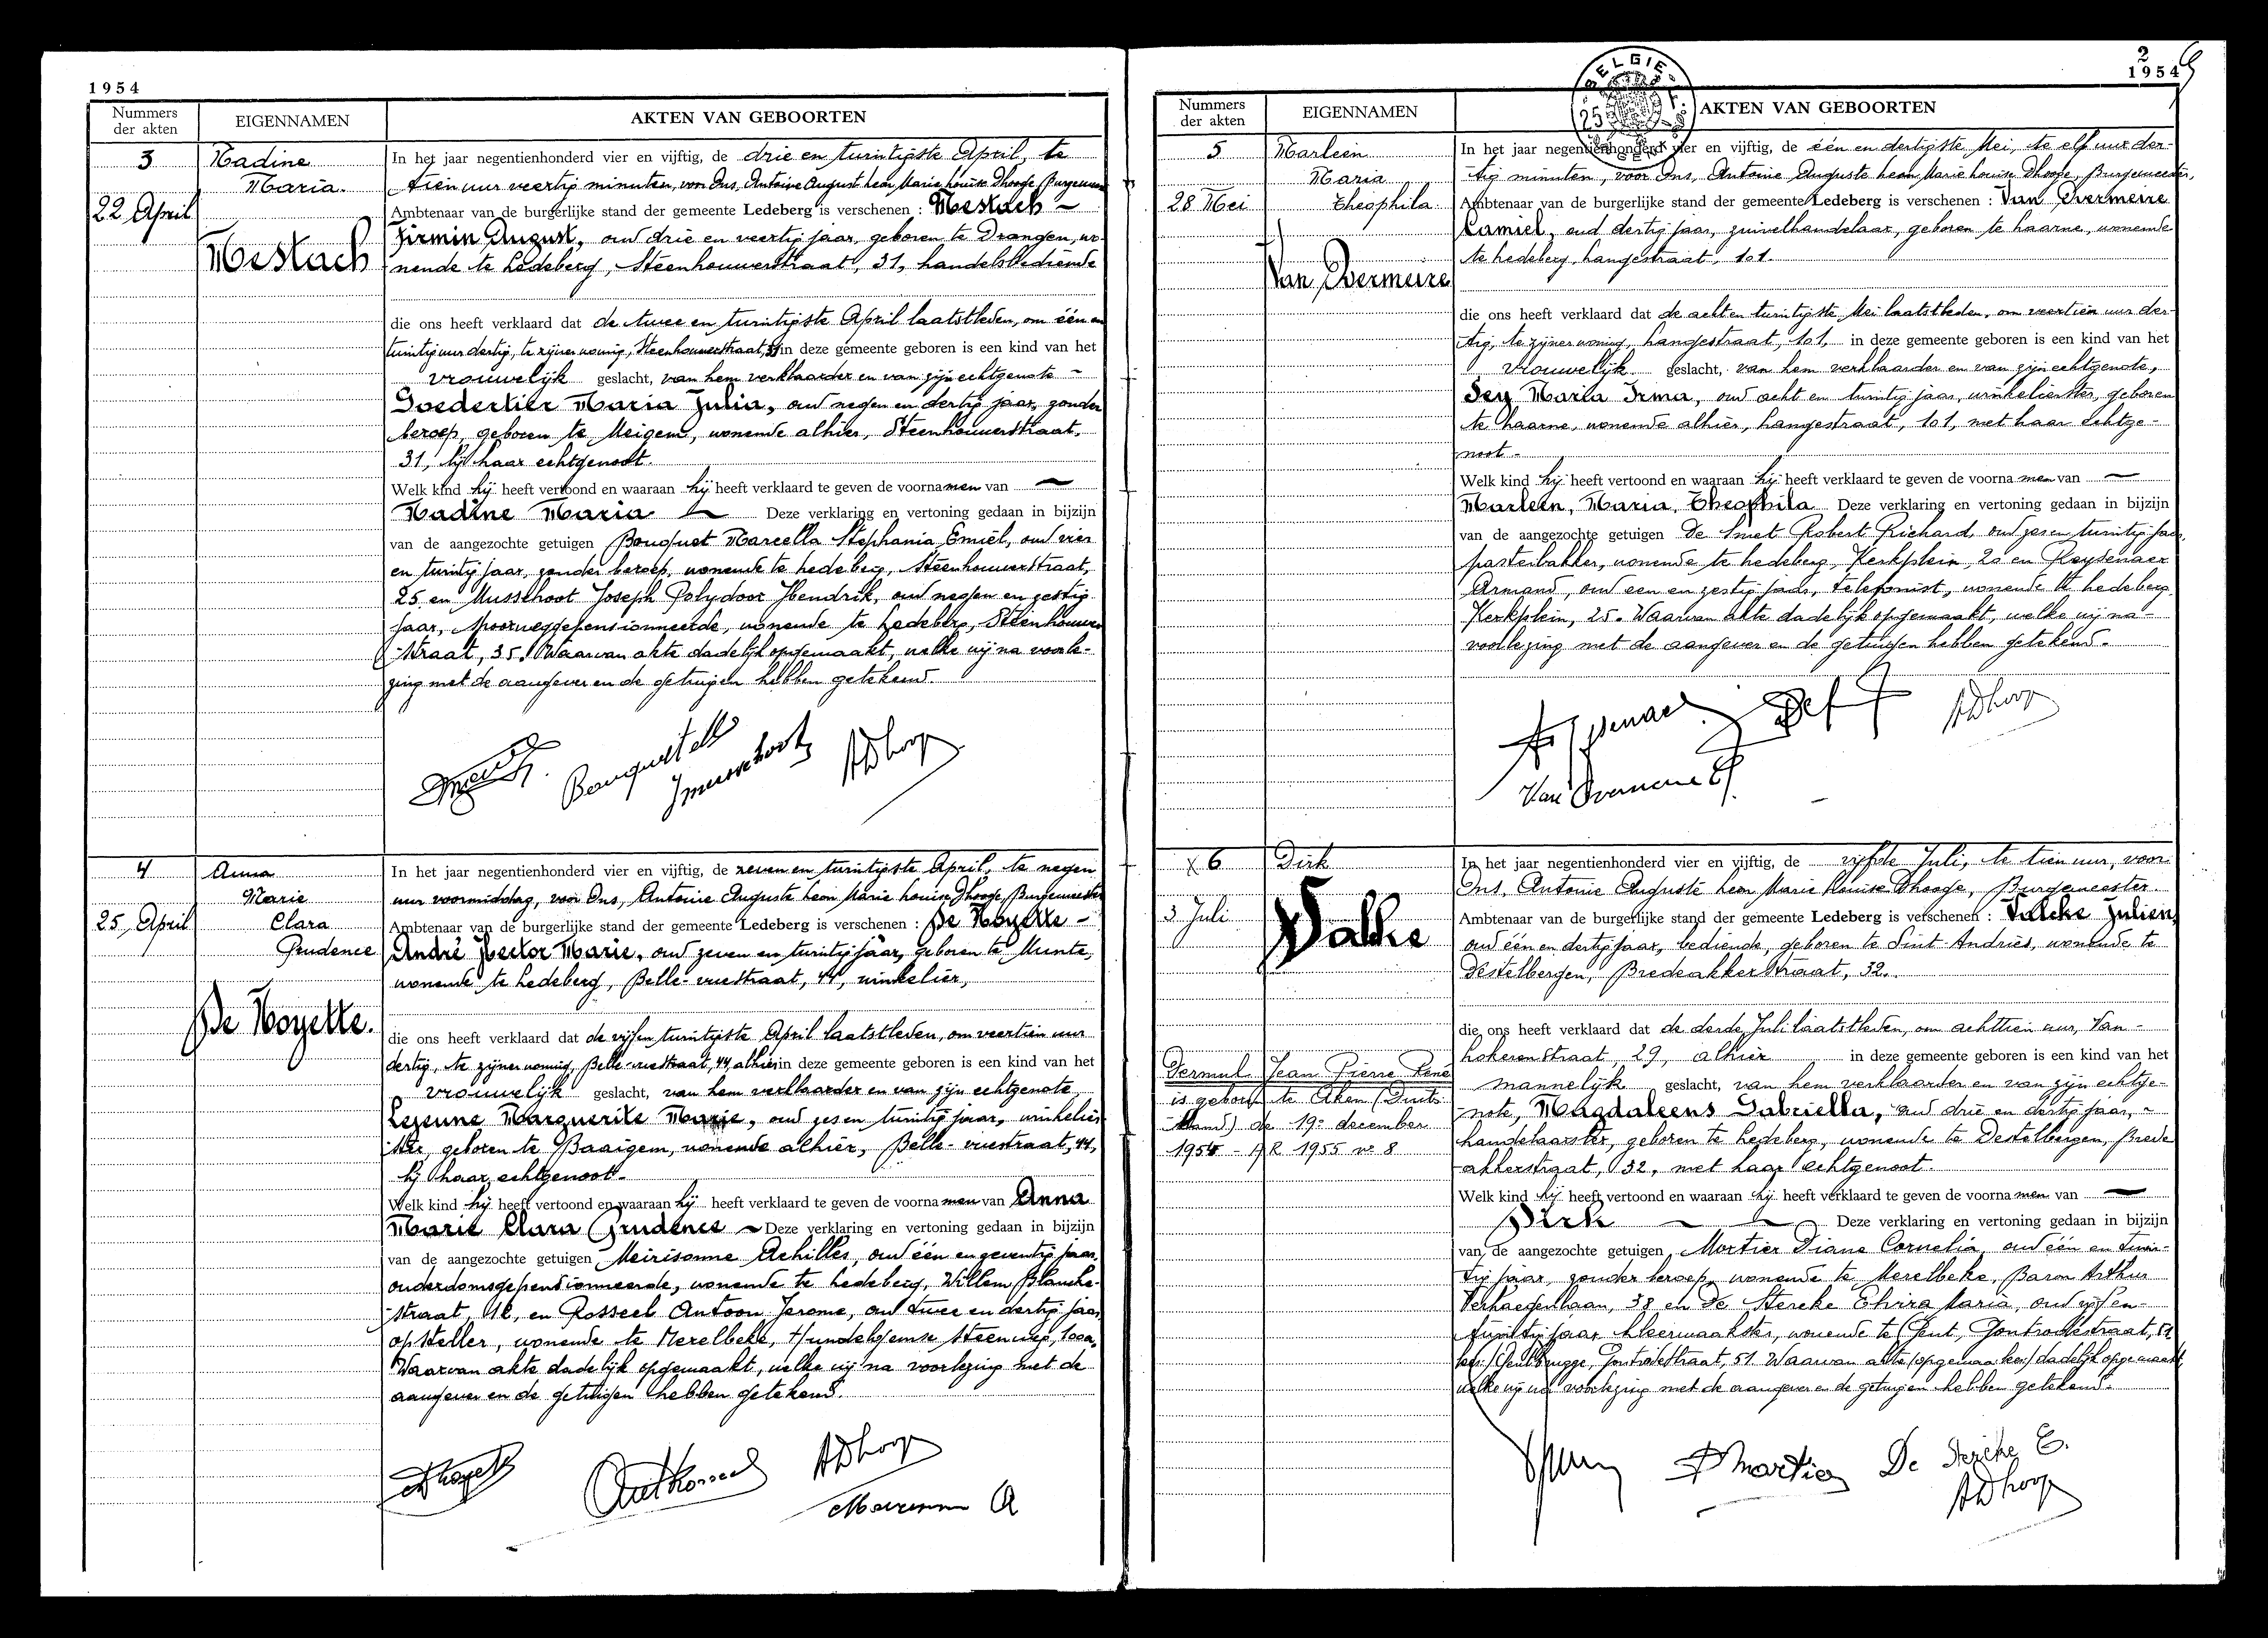 1954
Nummers
der akten
EIGENNAMEN
AKTEN VAN GEBOORTEN
3
Nadine
Maria.
22 April
Mestach
In het jaar negentienhonderd vier en vijftig, de drie en twintigste April, te
tien uur veertig minuten, voor Ons, Antoine August Leon Marie Louise Dhooge, Burgemeester
Ambtenaar van de burgerlijke stand der gemeente Ledeberg is verschenen : Mestach
Firmin August, oud drie en veertig jaar, geboren te Drongen, wo-
nende te Ledeberg, Steenhouwerstraat, 31, handelsbediende
die ons heeft verklaard dat de twee en twintigste April laatstleden, om één en
twintig uur dertig, te zijner woning, Steenhouwerstraat, 31 in deze gemeente geboren is een kind van het
vrouwelijk geslacht, van hem verklaarder en van zijn echtgenote
Goedertier Maria Julia, oud negen en dertig jaar, zonder
beroep, geboren te Meigem, wonende alhier, Steenhouwerstraat,
31, bij haar echtgenoot.
Welk kind hij heeft vertoond en waaraan hij heeft verklaard te geven de voornamen van
Nadine Maria Deze verklaring en vertoning gedaan in bijzijn
van de aangezochte getuigen Bouquet Marcella Stephania Emiel, oud vier
en twintig jaar, zonder beroep, wonende te Ledeberg, Steenhouwerstraat,
25 en Musschoot Joseph Polydoor Hendrik, oud negen en zestig
jaar, spoorweggepensionneerde, wonende te Ledeberg, Steenhouwer
straat, 35. Waarvan akte dadelijk opgemaakt, welke wij na voorle-
zing met de aangever en de getuigen hebben getekend.
4
Anna
Marie
25 April
Clara
Prudence
De Noyette.
In het jaar negentienhonderd vier en vijftig, de zeven en twintigste April, te negen
uur voormiddag, voor Ons, Antoine Auguste Leon Marie Louise Dhooge, Burgemeester
Ambtenaar van de burgerlijke stand der gemeente Ledeberg is verschenen : De Noyette -
André Hector Marie, oud zeven en twintig jaar, geboren te Munte,
wonende te Ledeberg, Belle-vuestraat, 44, winkelier,
die ons heeft verklaard dat de vijf en twintigste April laatstleden, om veertien uur
dertig, te zijner woning, Belle-vuestraat, 44, alhier in deze gemeente geboren is een kind van het
vrouwelijk geslacht, van hem verklaarder en van zijn echtgenote
Lejeune Marguerite Marie, oud zes en twintig jaar, winkelier-
ster, geboren te Baaigem, wonende alhier, Belle-vuestraat, 44,
bij haar echtgenoot.
Welk kind hij heeft vertoond en waaraan hij heeft verklaard te geven de voornamen van Anna
Marie Clara Prudence Deze verklaring en vertoning gedaan in bijzijn
van de aangezochte getuigen Meirisonne Achilles, oud één en zeventig jaar,
ouderdomsgepensionneerde, wonende te Ledeberg, Willem Blancke-
straat, en Rosseel Antoon Jerome, oud twee en dertig jaar,
opsteller, wonende te Merelbeke, Hundelgemse steenweg,
Waarvan akte dadelijk opgemaakt, welke wij na voorlezing met de
aangever en de getuigen hebben getekend.
2
1954
BELGIE
Nummers
der akten
EIGENNAMEN
AKTEN VAN GEBOORTEN
5
Marleen
Maria
28 Mei
Theophila
Van Overmeire
In het jaar negentienhonderd vier en vijftig, de één en dertigste Mei, te elf uur der-
tig minuten, voor Ons, Antoine Auguste Leon Marie Louise Dhooge, Burgemeester,
Ambtenaar van de burgerlijke stand der gemeente Ledeberg is verschenen : Van Overmeire
Kamiel, oud dertig jaar, zuivelhandelaar, geboren te Laarne, wonende
te Ledeberg, Langestraat, 101.
die ons heeft verklaard dat de acht en twintigste Mei laatstleden, om veertien uur der-
tig, te zijner woning, Langestraat, 101, in deze gemeente geboren is een kind van het
vrouwelijk geslacht, van hem verklaarder en van zijn echtgenote,
Maria Irma, oud acht en twintig jaar, winkelierster, geboren
te Laarne, wonende alhier, Langestraat, 101, met haar echtge-
noot -
Welk kind hij heeft vertoond en waaraan hij heeft verklaard te geven de voornamen van
Marleen, Maria, Theophila Deze verklaring en vertoning gedaan in bijzijn
van de aangezochte getuigen De Smet Robert Richard, oud zes en twintig jaar,
pasteibakker, wonende te Ledeberg, Kerkplein, 20 en Reysenaer
Armand, oud een en zestig jaar, telefonist, wonende te Ledeberg
Kerkplein, 25. Waarvan akte dadelijk opgemaakt, welke wij na-
voorlezing met de aangever en de getuigen hebben getekend.
Van Overmeire
6
Dirk
3 Juli
Valcke
In het jaar negentienhonderd vier en vijftig, de vijfde Juli, te tien uur, voor
Ons, Antoine Auguste Leon Marie Louise Dhooge, Burgemeester
Ambtenaar van de burgerlijke stand der gemeente Ledeberg is verschenen : Valcke Julien,
oud één en dertig jaar, bediende, geboren te Sint-Andries, wonende te
Destelbergen, Bredeakkerstraat, 32.
die ons heeft verklaard dat de derde Juli laatstleden, om achttien uur, Van-
hokerenstraat 29, alhier in deze gemeente geboren is een kind van het
mannelijk geslacht, van hem verklaarder en van zijn echtge-
note, Magdaleens Gabriella, oud drie en dertig jaar,
handelaarster, geboren te Ledeberg, wonende te Destelbergen, Brede
akkerstraat, 32, met haar echtgenoot.
Welk kind hij heeft vertoond en waaraan hij heeft verklaard te geven de voornamen van
Dirk Deze verklaring en vertoning gedaan in bijzijn
van de aangezochte getuigen Mortier Diana Cornelia, oud één en twin-
tig jaar, zonder beroep, wonende te Merelbeke, Baron Arthur
Verhaegenlaan, 38 en De Stercke Elvira Maria, oud vijf en-
twintig jaar, kleermaakster, wonende te Gent, Gontrodestraat, 51
lees: Gentbrugge, Gontrodestraat, 51. Waarvan akte dadelijk opgemaakt,
welke wij na voorlezing met de aangever en de getuigen hebben getekend.
Jean Pierre René
is geboren te Aken (Duits-
land) de 19e december
1954 - A R 1955 nr 8
D Mortier
De Stercke E.